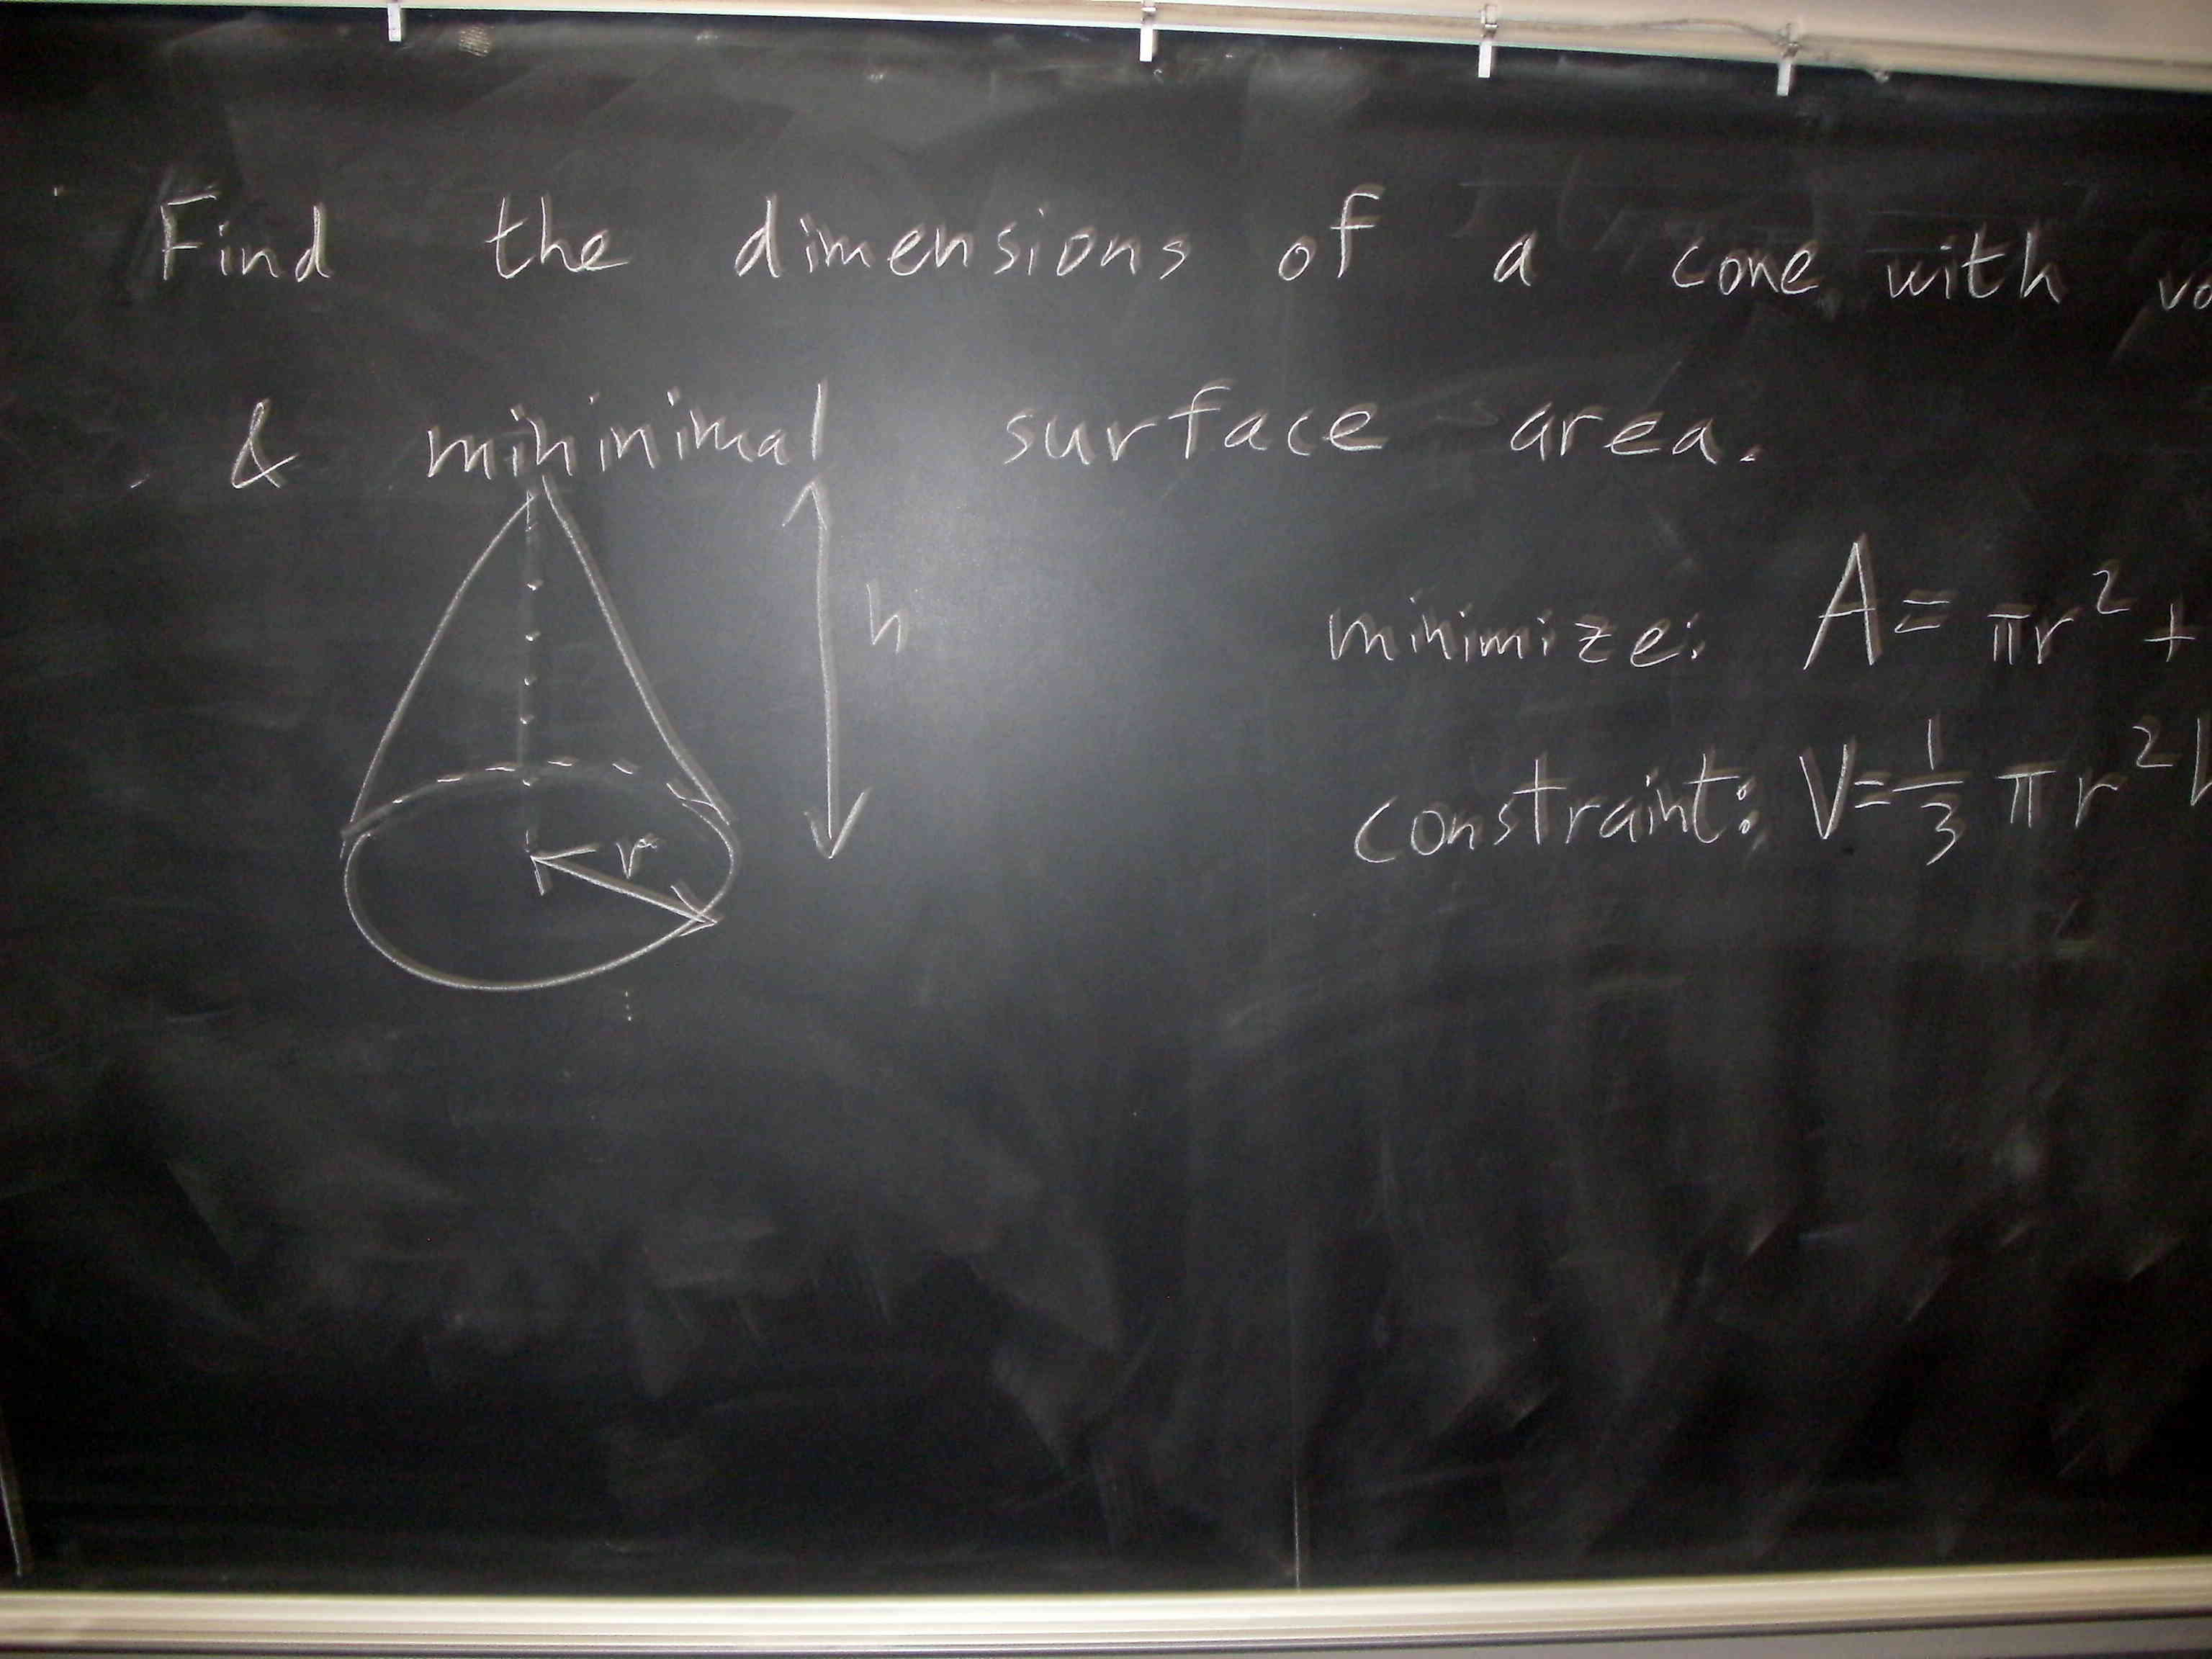 Find the dimensions of a cone with
& mininimal surface area.
h
minimize: A = πr² +
constraint: V = 1/3 πr²
r